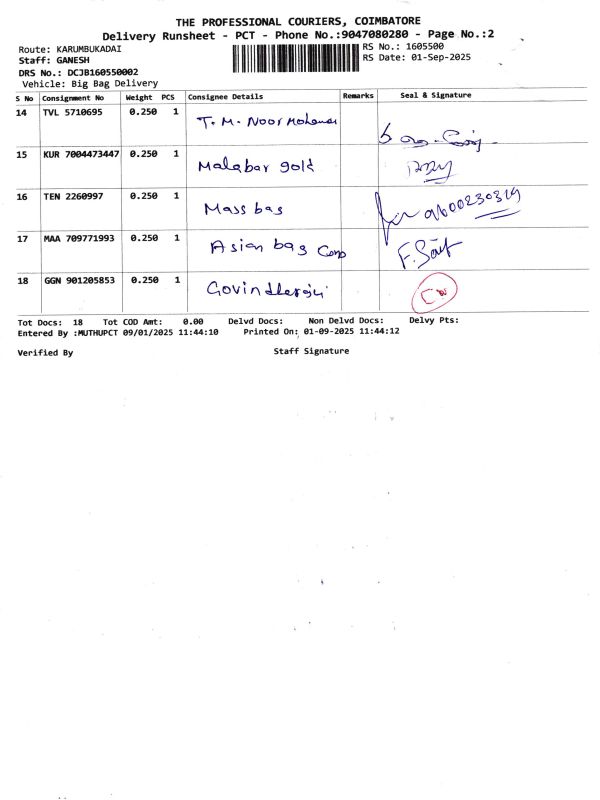 THE PROFESSIONAL COURIERS, COIMBATORE
Delivery Runsheet - PCT - Phone No.:9047080280 - Page No.:2
Route: KARUMBUKADAI
RS No.: 1605500
Staff: GANESH
RS Date: 01-Sep-2025
DRS No.: DCJB160550002
Vehicle: Big Bag Delivery
S No Consignment No Weight PCS Consignee Details Remarks Seal & Signature
14 TVL 5710695 0.250 1 T. M. Noor
15 KUR 7004473447 0.250 1 Malabar gold
16 TEN 2260997 0.250 1 Mass bag 9600230319
17 MAA 709771993 0.250 1 Asian bag Corp
18 GGN 901205853 0.250 1
Tot Docs: 18 Tot COD Amt: 0.00 Delvd Docs: Non Delvd Docs: Delvy Pts:
Entered By :MUTHUPCT 09/01/2025 11:44:10 Printed On: 01-09-2025 11:44:12
Verified By Staff Signature